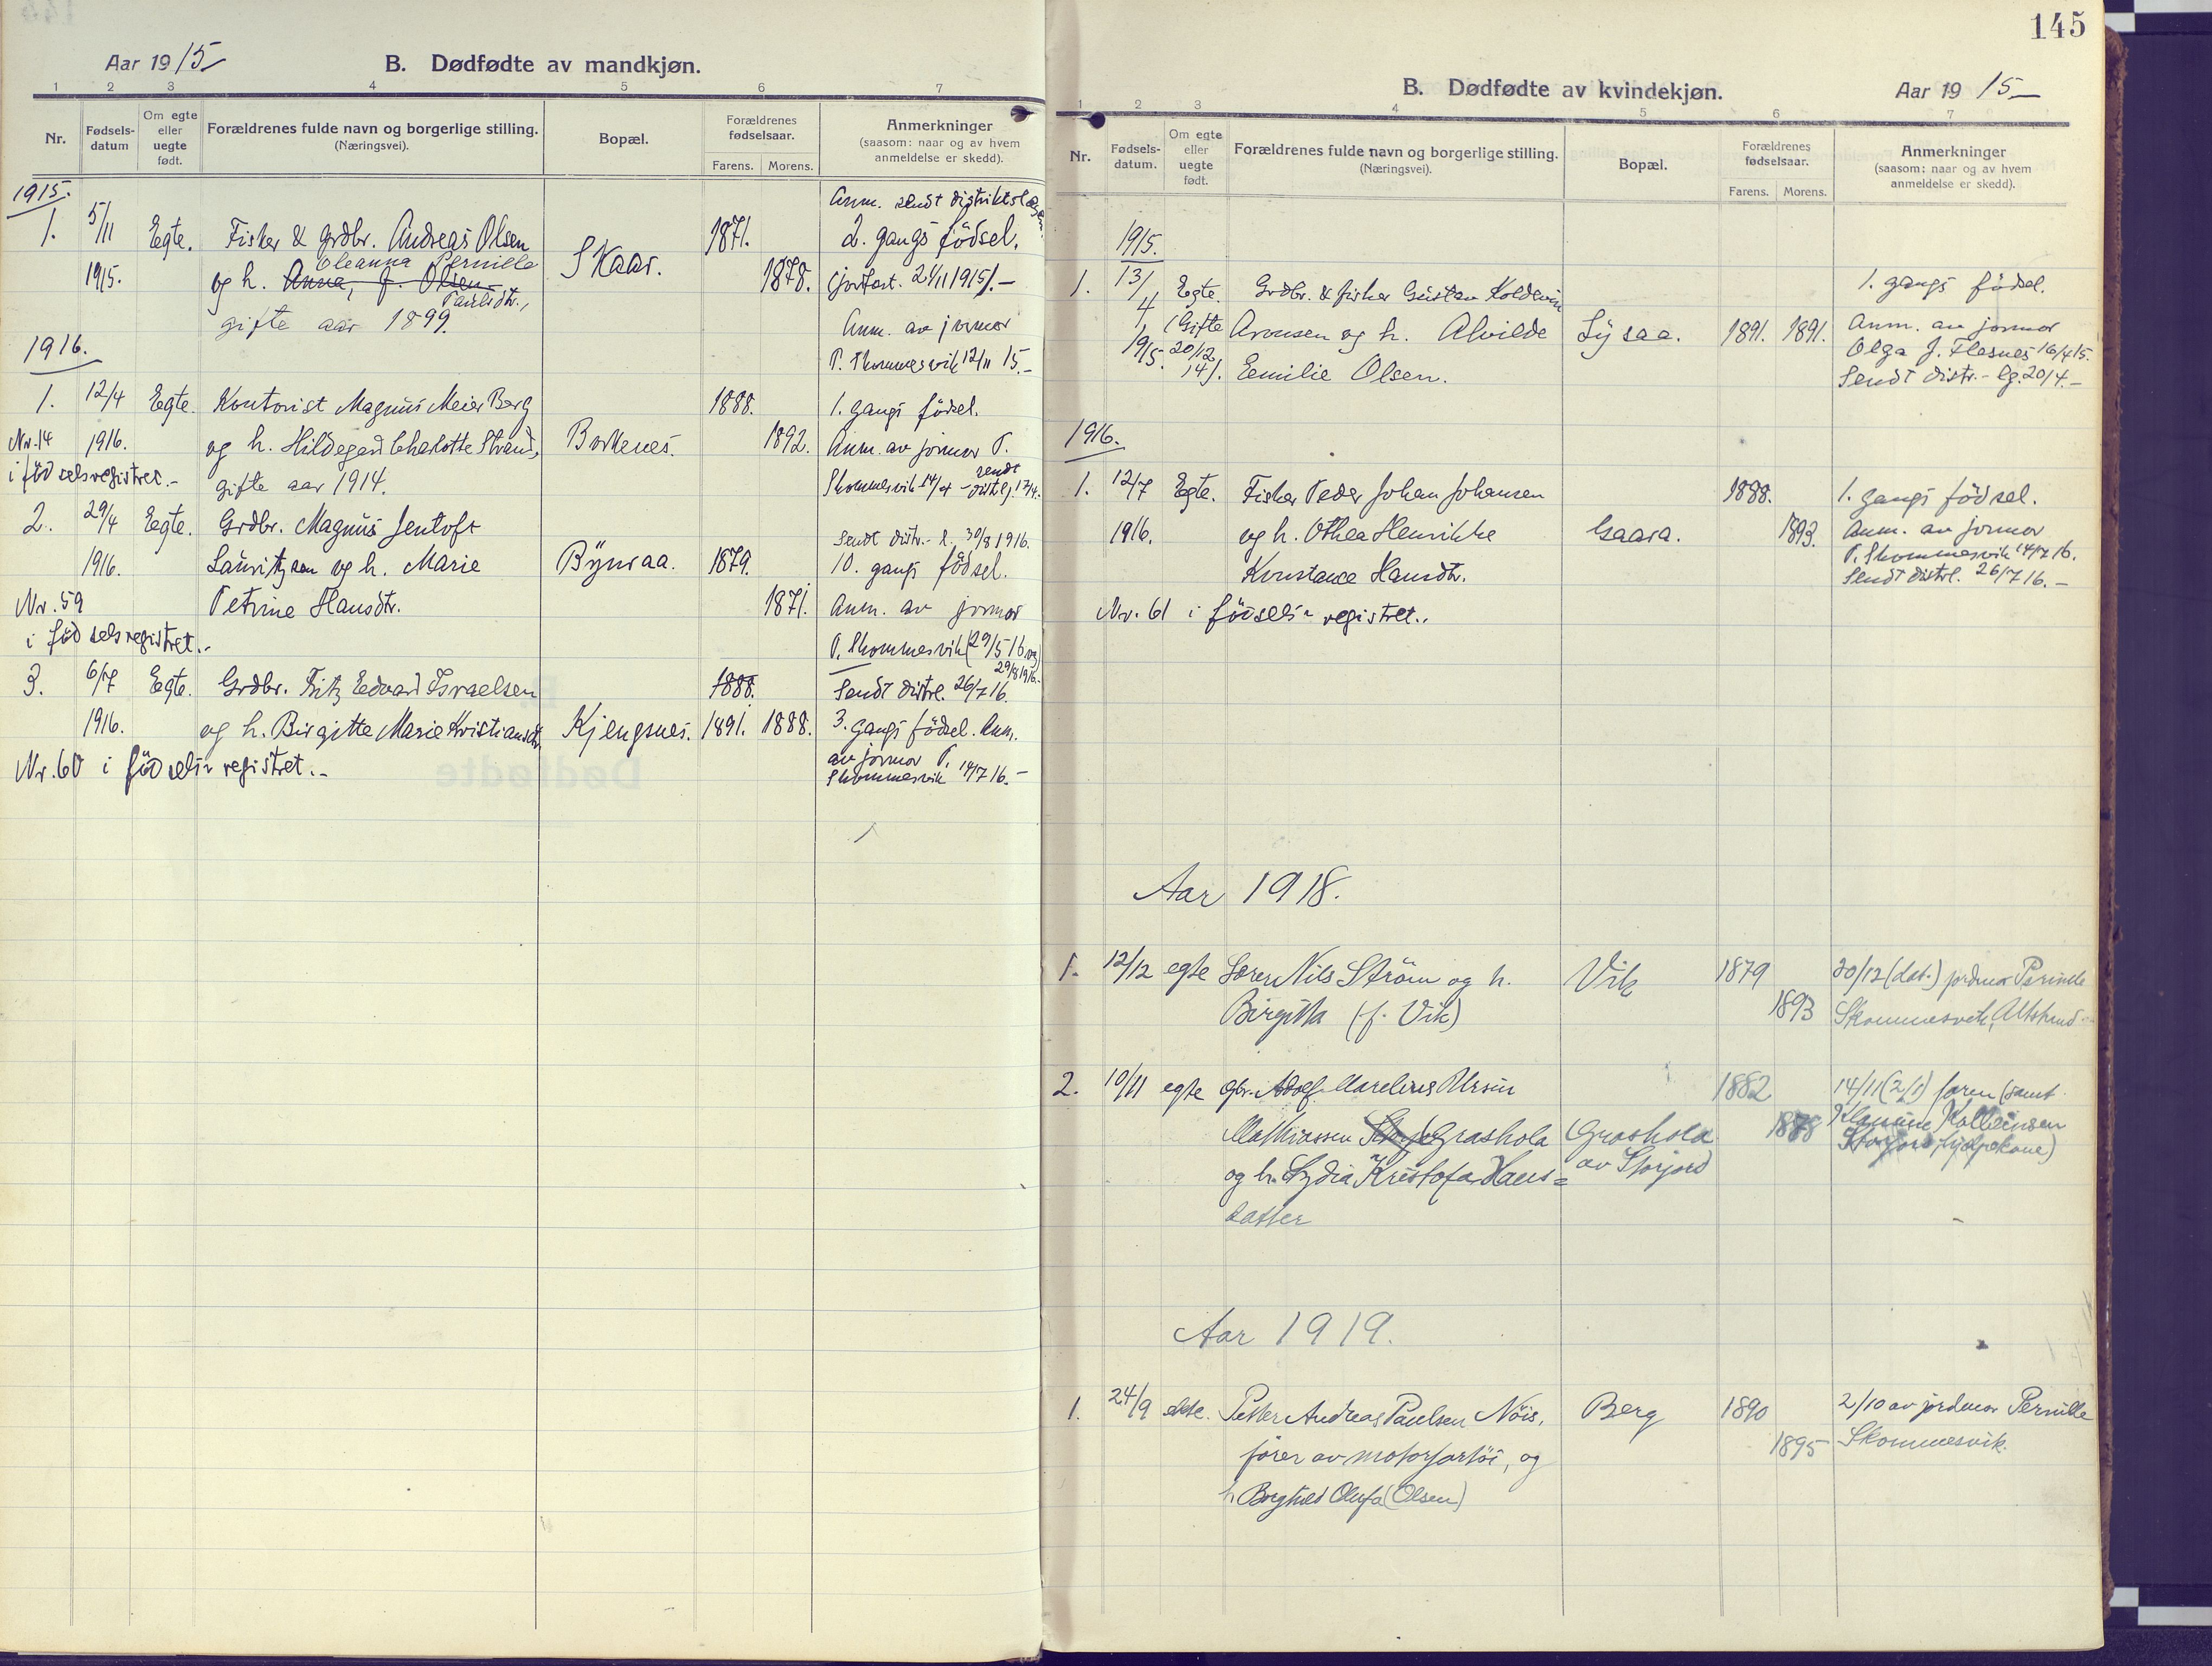 Aar 1915
B. Dødfødte av mandkjøn.
1 2 3 4 5 6 7
Nr.
Fødsels-
datum
Om egte
eller
uegte
født.
Forældrenes fulde navn og borgerlige stilling.
(Næringsvei).
Bopæl.
Forældrenes
fødselsaar.
Farens. Morens.
Anmerkninger
(saasom: naar og av hvem
anmeldelse er skedd).
1915.
Anm. sendt distriktslægen.
1. 5/11 Egte. Fisker & grdbr. Andreas Olsen 1871. 2. gangs födsel.
Oleanna Pernille
1915. og h. Anna, f. Olsen Skaar. 1878. 24/11 1915.
Paulsdtr.,
gifte aar 1899.
Anm. av jormor
P. Skommesvik 12/11 15.-
1916.
1. 12/4 Egte. Kontorist Magnus Meier Berg 1888. 1. gangs födsel.
Nr. 14 1916. og h. Hildegard Charlotte Strand, Borkenes. 1892. Anm. av jormor P.
i födselsregistret.- gifte aar 1914. Skommesvik 14/4 - sendt distrl. 17/4.
2. 29/4 Egte. Grdbr. Magnus Jentoft Sendt distr.-l. 30/8 1916.
1916. Lauritzsen og h. Marie Bÿnraa. 1879. 10. gangs födsel.
Nr. 59 Petrine Hansdtr. 1871. Anm. av jormor
i födselsregistret.- P. Skommesvik (29/5 16 og
29/8 1916.-
3. 6/7 Egte. Grdbr. Fritz Edvard Israelsen 1888. Sendt distrl. 26/7 16.
1916. og h. Birgitte Marie Kristiansdtr. Kjengsnes. 1891. 1888. 3. gangs födsel. Anm.
Nr. 60 i födsels- registret.- av jormor P.
Skommesvik 14/7 16.-
145
B. Dødfødte av kvindekjøn.
Aar 1915
1 2 3 4 5 6 7
Nr.
Fødsels-
datum.
Om egte
eller
uegte
født.
Forældrenes fulde navn og borgerlige stilling.
(Næringsvei).
Bopæl.
Forældrenes
fødselsaar.
Farens. Morens.
Anmerkninger
(saasom: naar og av hvem
anmeldelse er skedd).
1915.
1. 13/4 Egte. Grdbr. & fisker Gustav Koldevin 1. gangs födsel.
1915. (Gifte 20/12 14). Aronsen og h. Alvilde Lÿsaa. 1891. 1891. Anm. av jormor
Emilie Olsen. Olga J. Flesnes 16/4 15.
Sendt distr.-lg. 20/4.-
1916.
1. 12/7 Egte. Fisker Peder Johan Johansen 1888. 1. gangs födsel.
1916. og h. Othea Henrikke Gaara. 1893. Anm. av jormor
Konstance Hansdtr. P. Skommesvik 14/7 16.
Sendt distrl. 26/7 16.-
Nr. 61 i födsels- registret.-
Aar 1918.
1. 12/12 egte Lærer Nils Ström og h. Vik 1879 20/12 (dat.) jordmor Pernille
Birgitta (f. Vik) 1893 Skommesvik,
2. 10/11 egte gbr. Adolf Marelius Ursin 1882 14/11 (2/1) faren (samt
Mathiassen Grashola Grashola 1878 Kolbeinsen
og h. Lydia Kristofa Hans= av Storjord Storjord, hjelpekone)
datter
Aar 1919.
1. 24/9 ekte. Petter Andreas Paulsen Nöis, Berg 1890 2/10 av jordmor Pernille
förer av motorfartöi, og 1895 Skommesvik.
h. Borghild Olufa (Olsen)